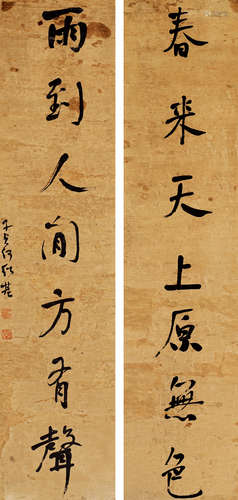 春来天上原無色
雨到人间方有聲
子貞何紹基